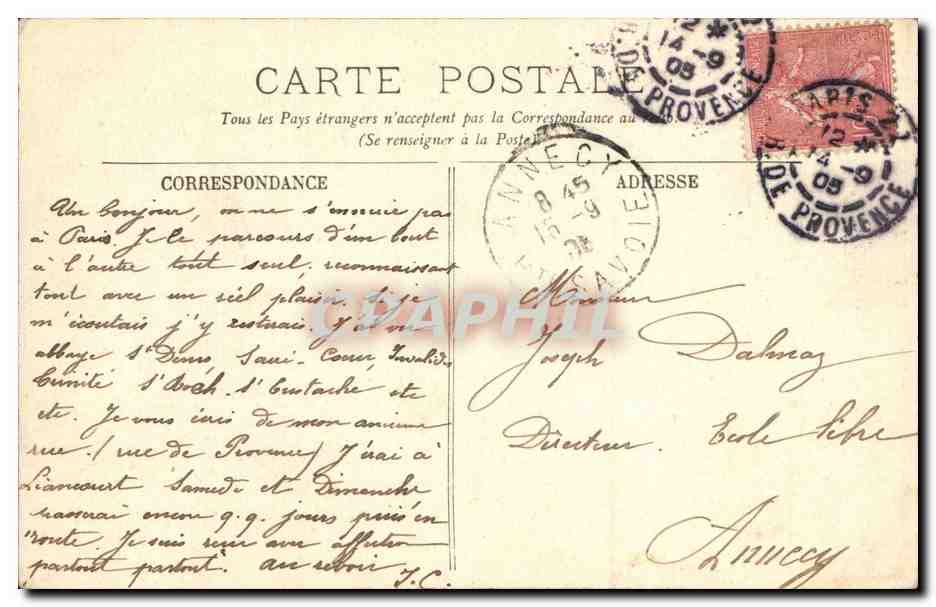 CARTE POSTALE
Tous les Pays étrangers n'acceptent pas la Correspondance au
(Se renseigner à la Poste)
CORRESPONDANCE
Un bonjour, on ne s'ennuie pas
à Paris. Je le parcours d'un bout
à l'autre tout seul. reconnaissant
tout avec un réel plaisir. Si je
m'écoutais j'y resterais. J'ai vu
abbaye St Denis, Sacré-Coeur, Invalides
Trinité St Roch, St Eustache, etc
etc. Je vous écris de mon ancienne
rue. (rue de Provence) J'irai à
Liancourt Samedi et Dimanche
passerai encore q.q. jours puis en
route. Je suis avec affection
partout partout. au revoir
J.C.
ADRESSE
Monsieur
Joseph Dalmaz
Directeur Ecole libre
Annecy
ANNECY
8 45
15 -9
05
HTE SAVOIE
12 *
14 -9
05
R. DE PROVENCE
PARIS
12 *
14 -9
05
R. DE PROVENCE
CPAPHIL